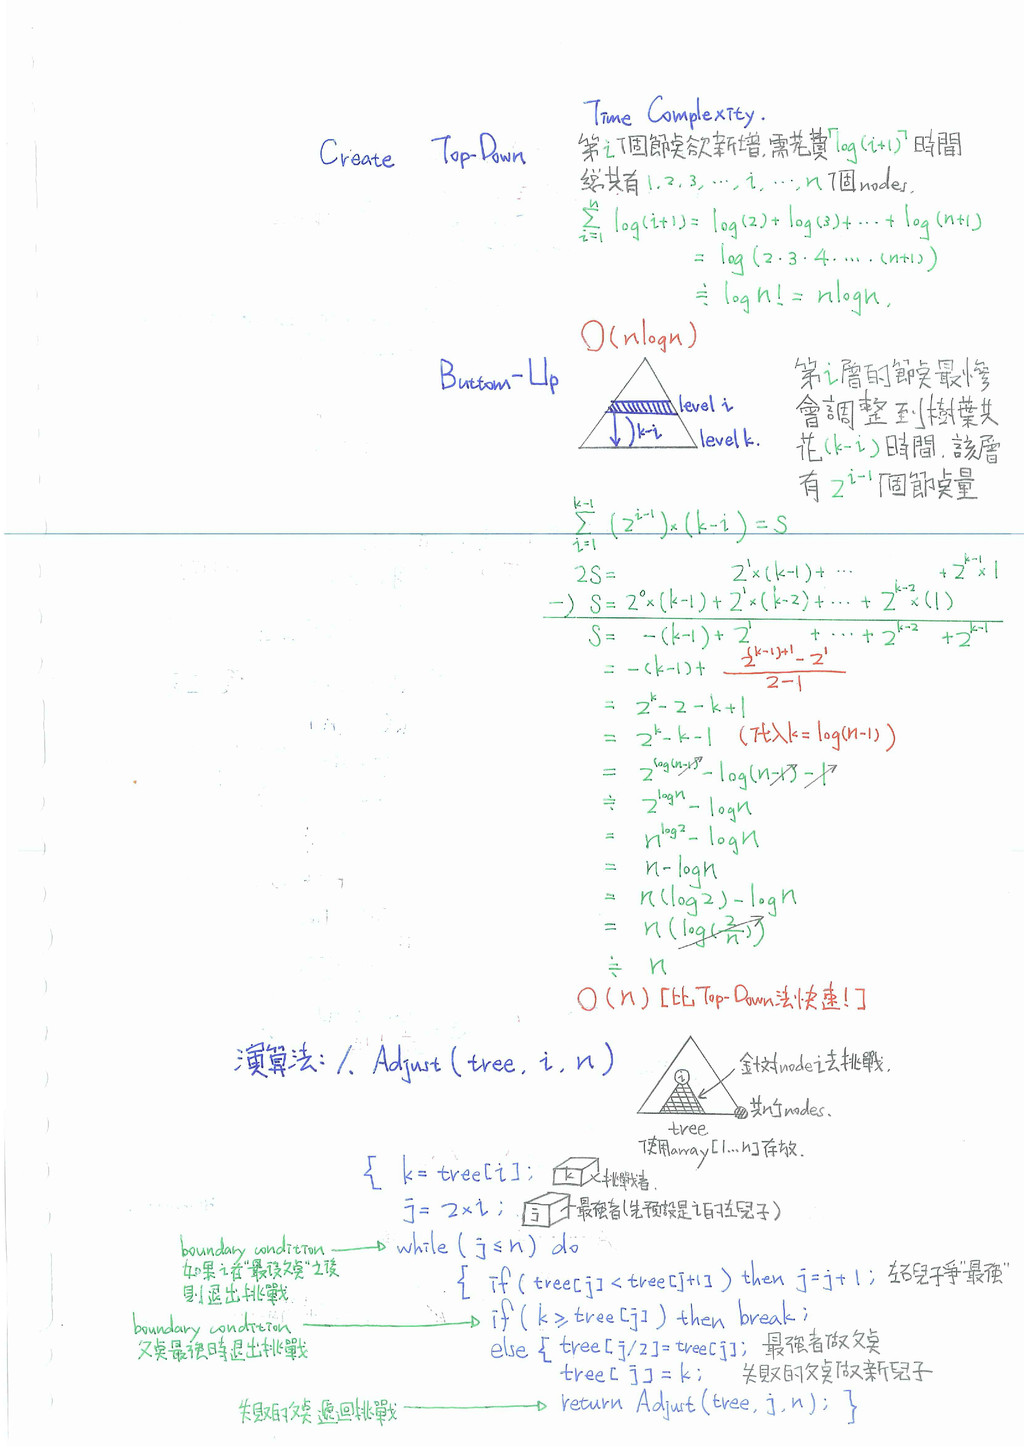 Time Complexity.
Create Top-Down
第i個節點欲新增,需花費「log(i+1)」時間
總共有1,2,3,⋯,i,⋯,n個nodes.
n
Σ log(i+1) = log(2)+log(3)+⋯+log(n+1)
i=1
= log(2·3·4·⋯·(n+1))
≒ logn! = nlogn.
O(nlogn)
Buttom-Up
level i
k-i
level k.
第i層的節點最慘
會調整至到樹葉共
花(k-i)時間,該層
有2^{i-1}個節點量
k-1
Σ (2^{i-1})×(k-i) = S
i=1
2S = 2^1×(k-1)+ ⋯ +2^{k-1}×1
-) S = 2^0×(k-1)+2^1×(k-2)+⋯+2^{k-2}×(1)
S = -(k-1)+2^1 +⋯+2^{k-2} +2^{k-1}
= -(k-1)+ (2^{(k-1)+1}-2^1)/(2-1)
= 2^k-2-k+1
= 2^k-k-1 (代入k=log(n-1))
= 2^{log(n-1)}-log(n-1)-1
≒ 2^{logn}-logn
= n^{log2}-logn
= n-logn
= n(log2)-logn
= n(log(2/n))
≒ n
O(n) [比Top-Down法快速!]
演算法: 1. Adjust(tree, i, n)
i
針對node i去挑戰.
共n個nodes.
tree
使用array[1…n]存放.
{ k = tree[i]; k 挑戰者.
j = 2×i; j 最強者(先預設是i的左兒子)
boundary condition
如果i在"最後父點"之後
則退出挑戰
while (j≤n) do
{ if (tree[j]<tree[j+1]) then j=j+1; 左右兒子爭"最強"
boundary condition
父點最強時退出挑戰
if (k≥tree[j]) then break;
else { tree[j/2]=tree[j]; 最強者做父點
tree[j]=k; 失敗的父點做新兒子
失敗的父點遞迴挑戰
return Adjust(tree, j, n); }